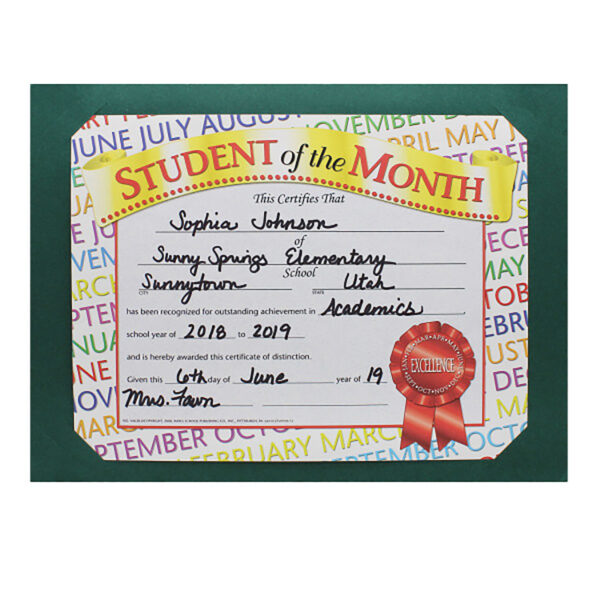 JUNE JULY AUGUST
NOVEMBER
APRIL MAY
STUDENT of the MONTH
This Certifies That
Sophia Johnson
of
Sunny Springs Elementary
School
Sunnytown Utah
CITY STATE
has been recognized for outstanding achievement in Academics
school year of 2018 to 2019
and is hereby awarded this certificate of distinction.
Given this 6th day of June year of 19
Mrs. Fawn
EXCELLENCE
SEPTEMBER OCTO
FEBRUARY MARC
SEPTEMBER OCTO